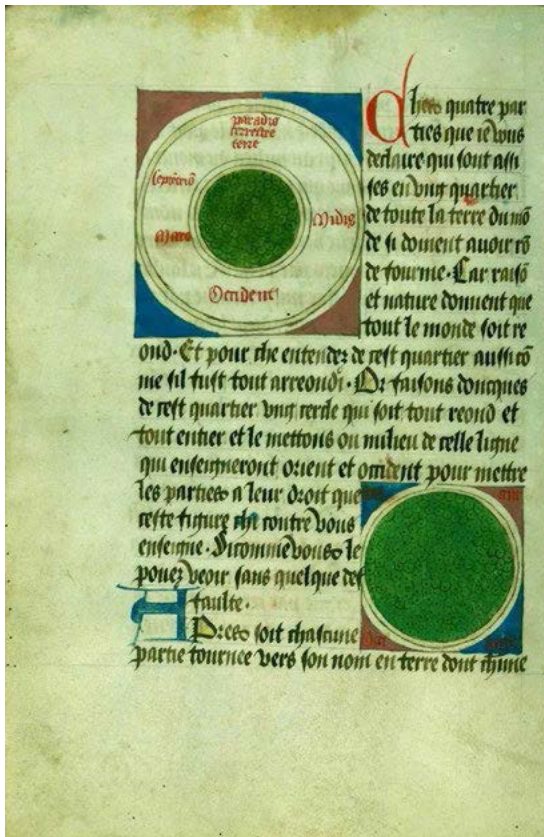 paradis
terrestre
terre
septētriō
Midis
Mars
Occident
Ches quatre par
ties que ie vous
declaire qui sont assi
ses en vng quartier
de toute la terre du mō
de si doiuent auoir rō
de fourme. Car raisō
et nature donnent que
tout le monde soit re
ond. Et pour che entendez de cest quartier aussi cō
me sil fust tout arreondi. Or faisons doncques
de cest quartier vng cercle qui soit tout reond et
tout entier et le mettons ou milieu de celle ligne
qui enseigneront orient et occident pour mettre
les parties a leur droit que
ceste figure cha contre vous
enseigne. Si comme vous le
pouez veoir sans quelque def
faulte.
APres soit chascune
partie tournee vers son nom en terre dont chune